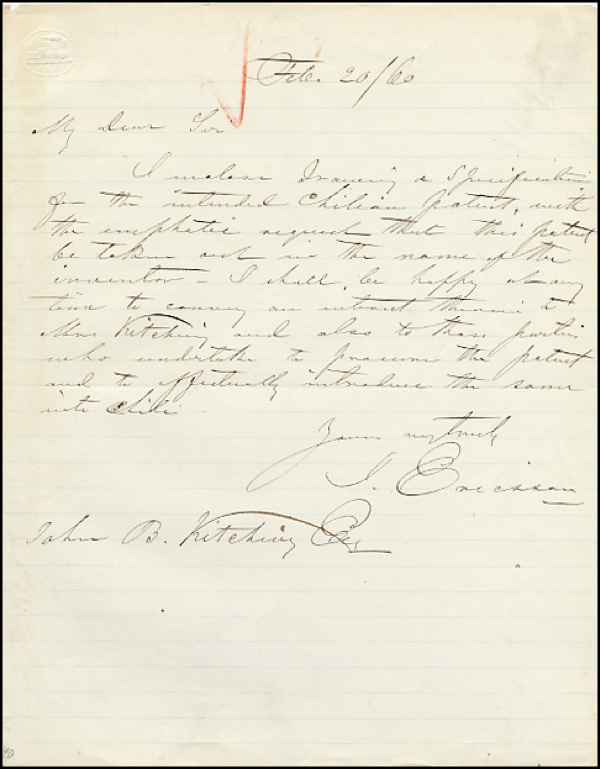 Feb. 20/60
My Dear Sir
I inclose Drawing & Specification
for the intended Chilian patent, with
the emphatic request that this patent
be taken out in the name of the
inventor - I shall be happy at any
time to convey an interest therein to
Mrs Kitching and also to those parties
who undertake to procure the patent
and to effectually introduce the same
into Chili.
Yours very truly
J. Ericsson
John B. Kitching Esq